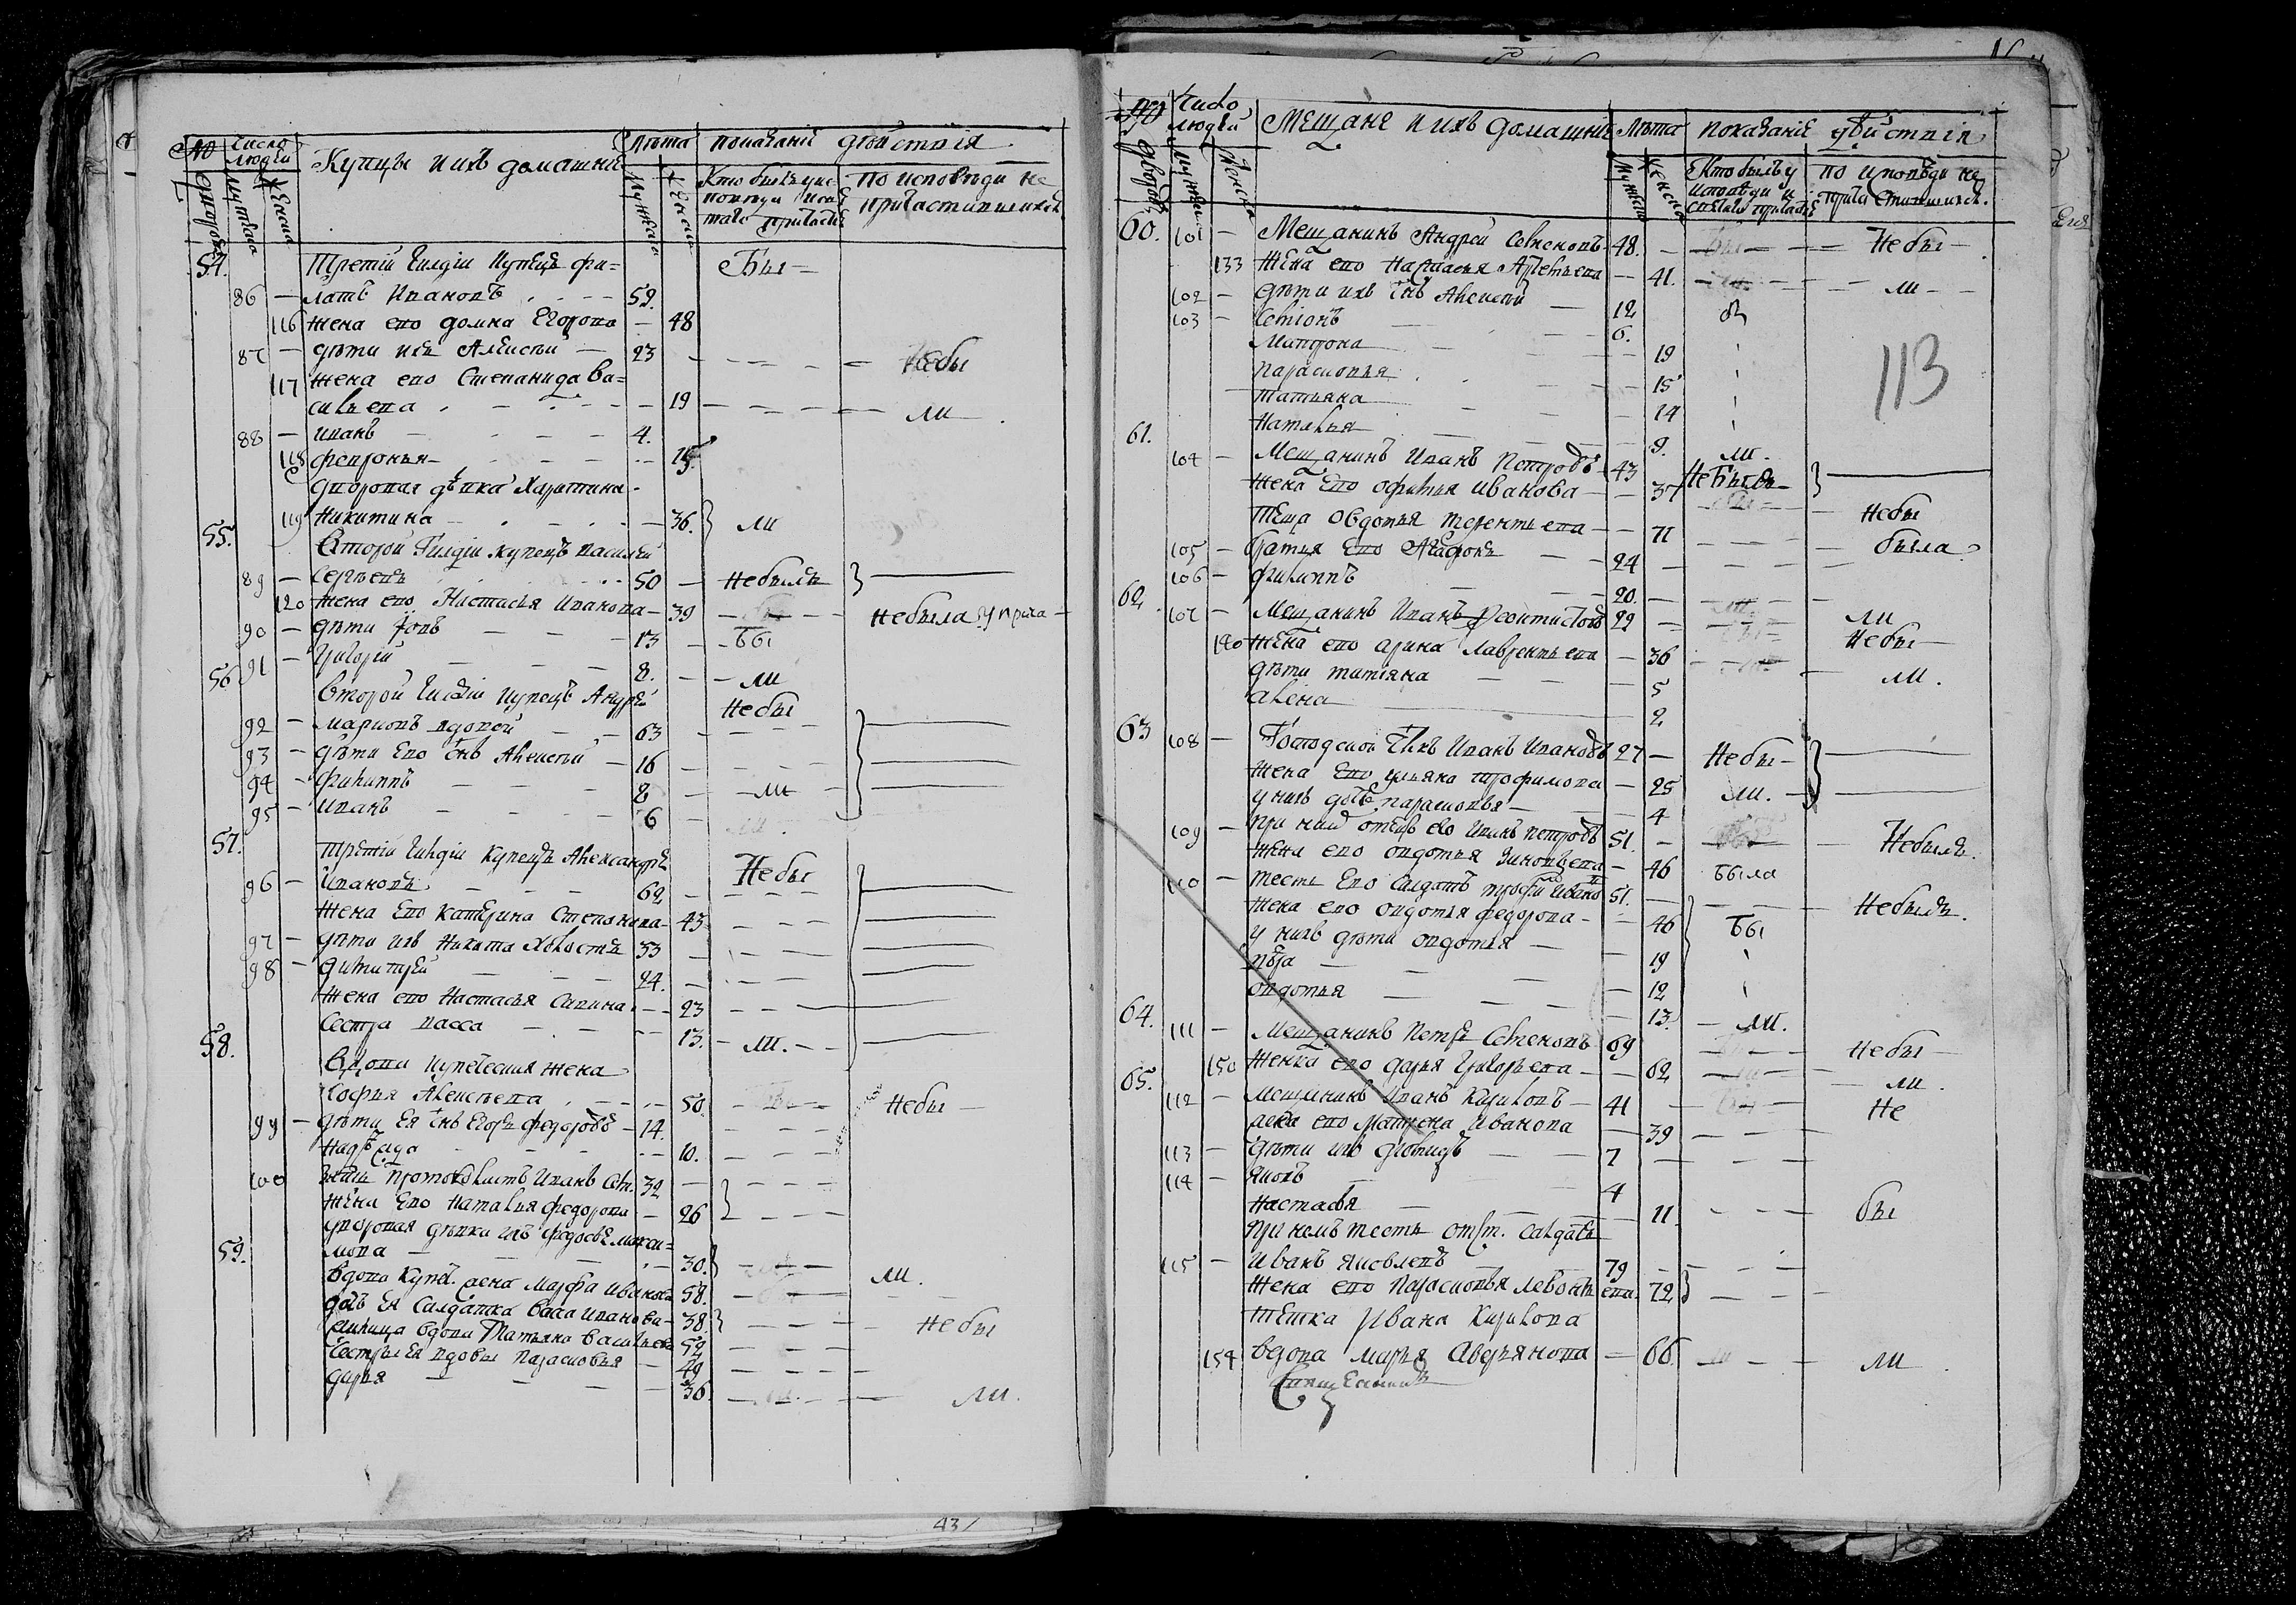 № дворовъ
Число людей
Мужеска
Женска
Купцы и ихъ домашніе
Лѣта
Мужеска
Женска
показаніе дѣйствія
Кто былъ у исповѣди и святаго причастія
по исповѣди не причастившихся
54. Третій гилдіи купецъ Фи= Бы—
86 — латъ Ивановъ 59.
116 жена ево Домна Егорова — 48
87 — дѣти ихъ Алексей — 23 Небы
117 жена ево Степанида Ва=
сильева — 19 ли
88 — Иванъ 4.
118 Февронья
дворовая дѣвка Харитина
119 Никитина — 36. ли
55. Второй Гилдіи купецъ Василей
89 — Сергеевъ 50 — Небылъ
120 жена ево Настасья Иванова — 39 Небыла у прича—
90 — дѣти 13 — Бы
91 — Григорій 8. — ли
56 Второй гилдіи купецъ Андрей Небы
92 — Марковъ вдовой 63
93 — дѣти ево снъ Алексей — 16
94 — Филиппъ 8 — ли
95 — Иванъ 6
57. Третій гилдіи купецъ Александръ Небы
96 — Ивановъ 62
жена ево Катерина Степанова — 43
97 — дѣти ихъ Никита холостъ 33
98 — Димитрей 24.
жена ево Настасья Савина — 23
сестра Васса 13. — ли.
58. Вдова купеческая жена
Софья Алексеева 50. Небы—
99 — дѣти ея снъ Егоръ Федоровъ — 14.
Надежда 10.
100 зять протоколистъ Иванъ Сем. 32
жена ево Наталья Федорова — 26
дворовая дѣвка ихъ Федосья Макси=
мова — 30. ли.
59. Вдова купеч. жена Марфа Иванова 58.
дочь ея салдатка Васса Иванова — 38. Небы
вдова Татьяна Васильева 52
сестры ея вдовы Парасковья — 49
Дарья — 36. ли.
43/
№ дворовъ
Число людей
Мужеска
Женска
Мещане и ихъ домашніе
Лѣта
Мужеска
Женска
показаніе дѣйствія
Кто былъ у исповѣди и святаго причастія
по исповѣди не причастившихся.
60. 101 — Мещанинъ Андрей Семеновъ 48. Небы—
133 жена ево Настасья Артемьева — 41. ли—
102 — дѣти ихъ снъ Алексей — 12
103 — Семіонъ 6.
Матрона 19
Парасковья 15
Татьяна 14
Наталья 9. ли.
113
61. 104 — Мещанинъ Иванъ Петровъ 43 Небылъ
жена ево Офимья Иванова — 37 Небы
теща Овдотья Терентьева — 71 была
105 — братья ево Агафонъ 24
106 — Филиппъ 20. ли
62. 107 — Мещанинъ Иванъ Феоктистовъ 29 Небы—
140 жена ево Арина Лаврентьева — 36 ли.
дѣти Татіана 5
Алена 2
63 108 — Иванъ Ивановъ 27 — Небы—
жена ево Ульяна Трофимова — 25 ли.
у нихъ дочь Парасковья 4
109 — при нимъ отецъ ево Иванъ Петровъ 51. Небылъ.
жена ево Овдотья Зиновьева — 46 Была
110 — тесть ево салдатъ Трофимъ Ивановъ 51. Небылъ.
жена ево Овдотья Федорова — 46 Бы
у нихъ дѣти Овдотья 19
12
Овдотья 13. — ли.
64. 111 — Мещанинъ Петръ Семеновъ 69 Небы—
150 женка ево Дарья Григорьева — 62 ли.
65. 112 — Мещанинъ Иванъ Кириловъ — 41 Не
жена ево Матрена Иванова — 39
113 — дѣти ихъ 7
114 — Яковъ 4
Настасья 11. бы
при немъ тесть отст. салдатъ
115 — Иванъ Яковлевъ 79
жена ево Парасковья Левонтьева 72
тетка Ивана Кирилова
154 вдова Марья Аверьянова — 66. ли